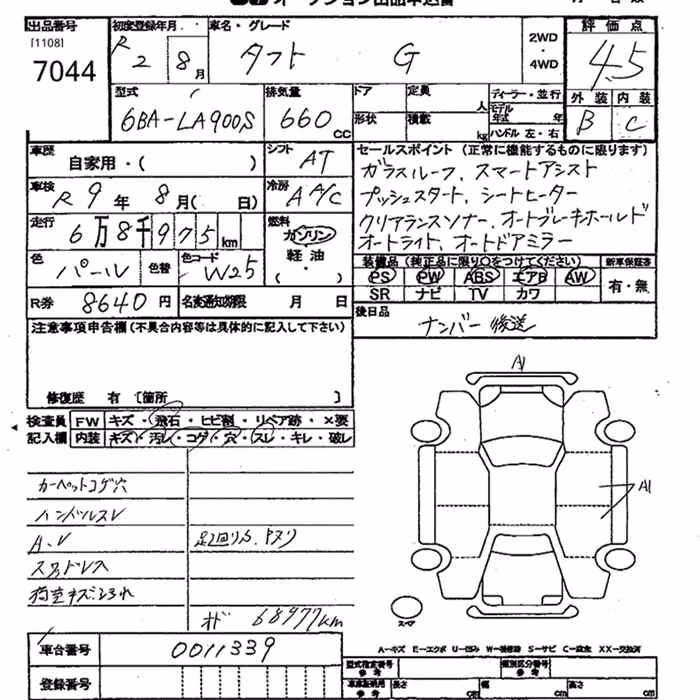 オークション出品申込書
出品番号 初度登録年月 車名・グレード 2WD・4WD 評価点
[1108] 7044 R2 8月 タフト G 4.5
型式 排気量 ドア 定員 人 ディーラー・並行 外装 内装
6BA-LA900S 660cc 形状 積載 kg モデル年式 年 ハンドル 左・右 B C
車歴 シフト セールスポイント (正常に機能するものに限ります)
自家用・( ) AT ガラスルーフ、スマートアシスト
車検 冷房 プッシュスタート、シートヒーター
R9年 8月( 日) AA/C クリアランスソナー、オートブレーキホールド
走行 燃料 オートライト、オートドアミラー
6万8千975km ガソリン
色 色替 色コード 軽油 装備品 (純正品に限り○をつけてください) 新車保証書
パール W25 ・( ) PS PW ABS エアB AW 有・無
SR ナビ TV カワ
R券 8640円 名変通知期限 月 日 後日品
ナンバー後送
注意事項申告欄(不具合内容等は具体的に記入して下さい)
修復歴 有 [箇所 ]
検査員 FW キズ・飛石・ヒビ割・リペア跡・×要
記入欄 内装 キズ・汚レ・コゲ・穴・スレ・キレ・破レ
A1
A1
カーペットコゲ穴
ハンドルスレ
足廻りS、Pヌリ
オド 68977km
スペア
A-キズ E-エクボ U-凹ミ W-補修跡 S-サビ C-腐食 XX-交換済
車台番号 0011339 型式指定番号 参考 類別区分番号 参考
登録番号 車庫証明用 参考 長さ cm 幅 cm 高さ cm